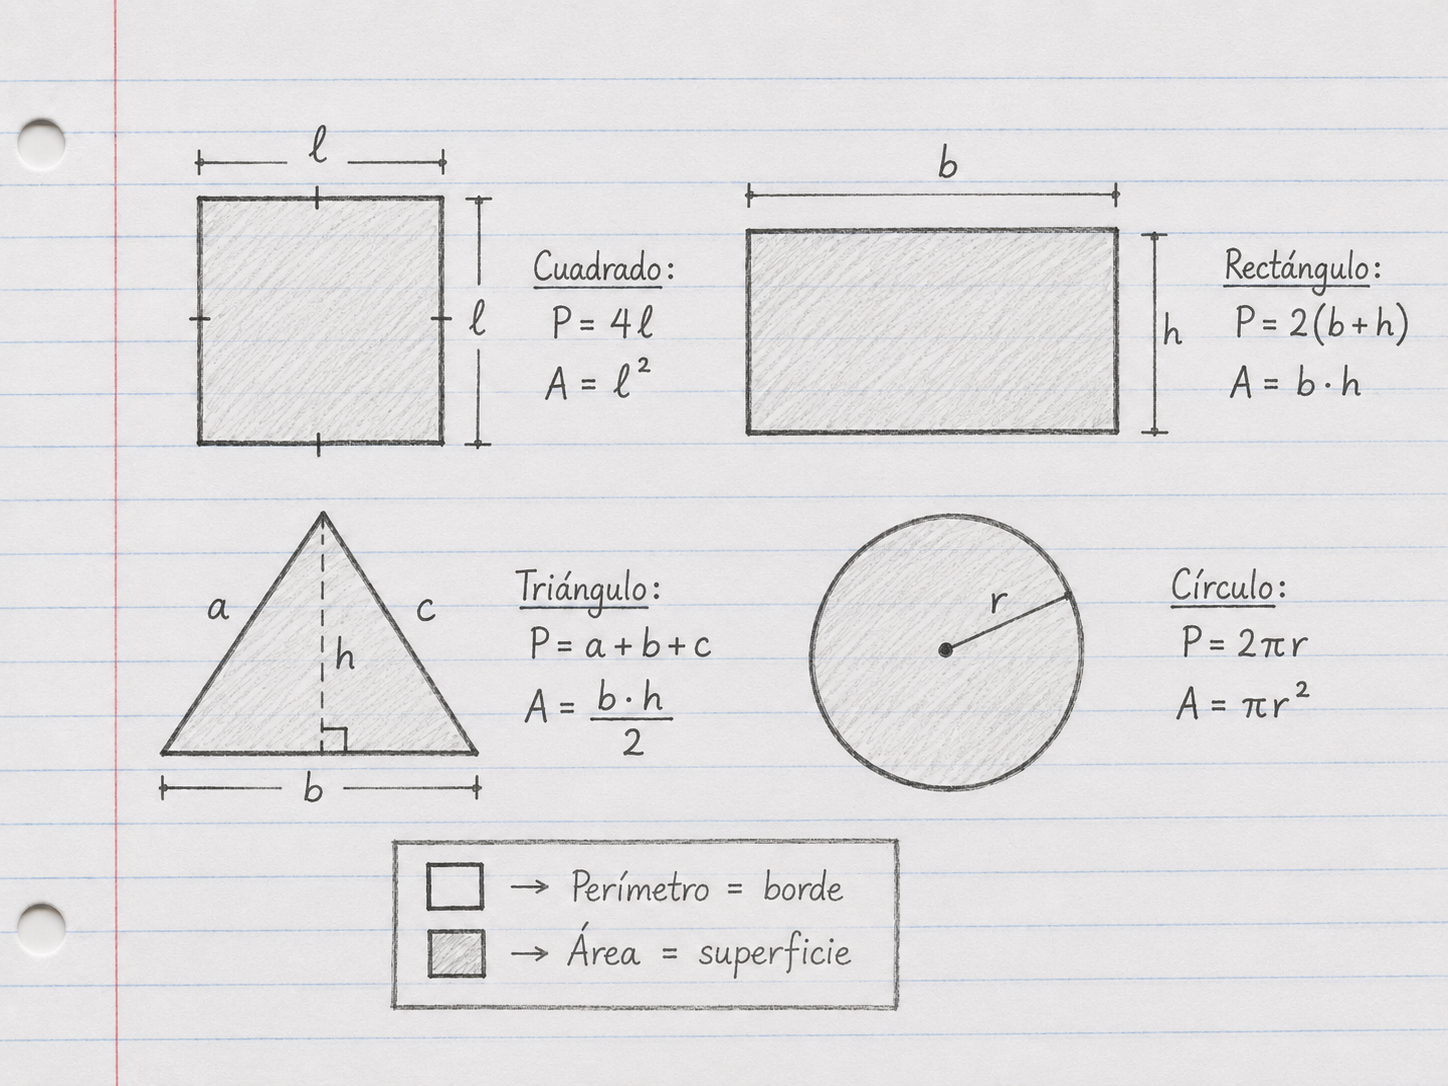 ℓ
ℓ
Cuadrado:
P = 4ℓ
A = ℓ²
b
h
Rectángulo:
P = 2(b + h)
A = b · h
a
c
h
b
Triángulo:
P = a + b + c
A = b · h
2
r
Círculo:
P = 2πr
A = πr²
→ Perímetro = borde
→ Área = superficie